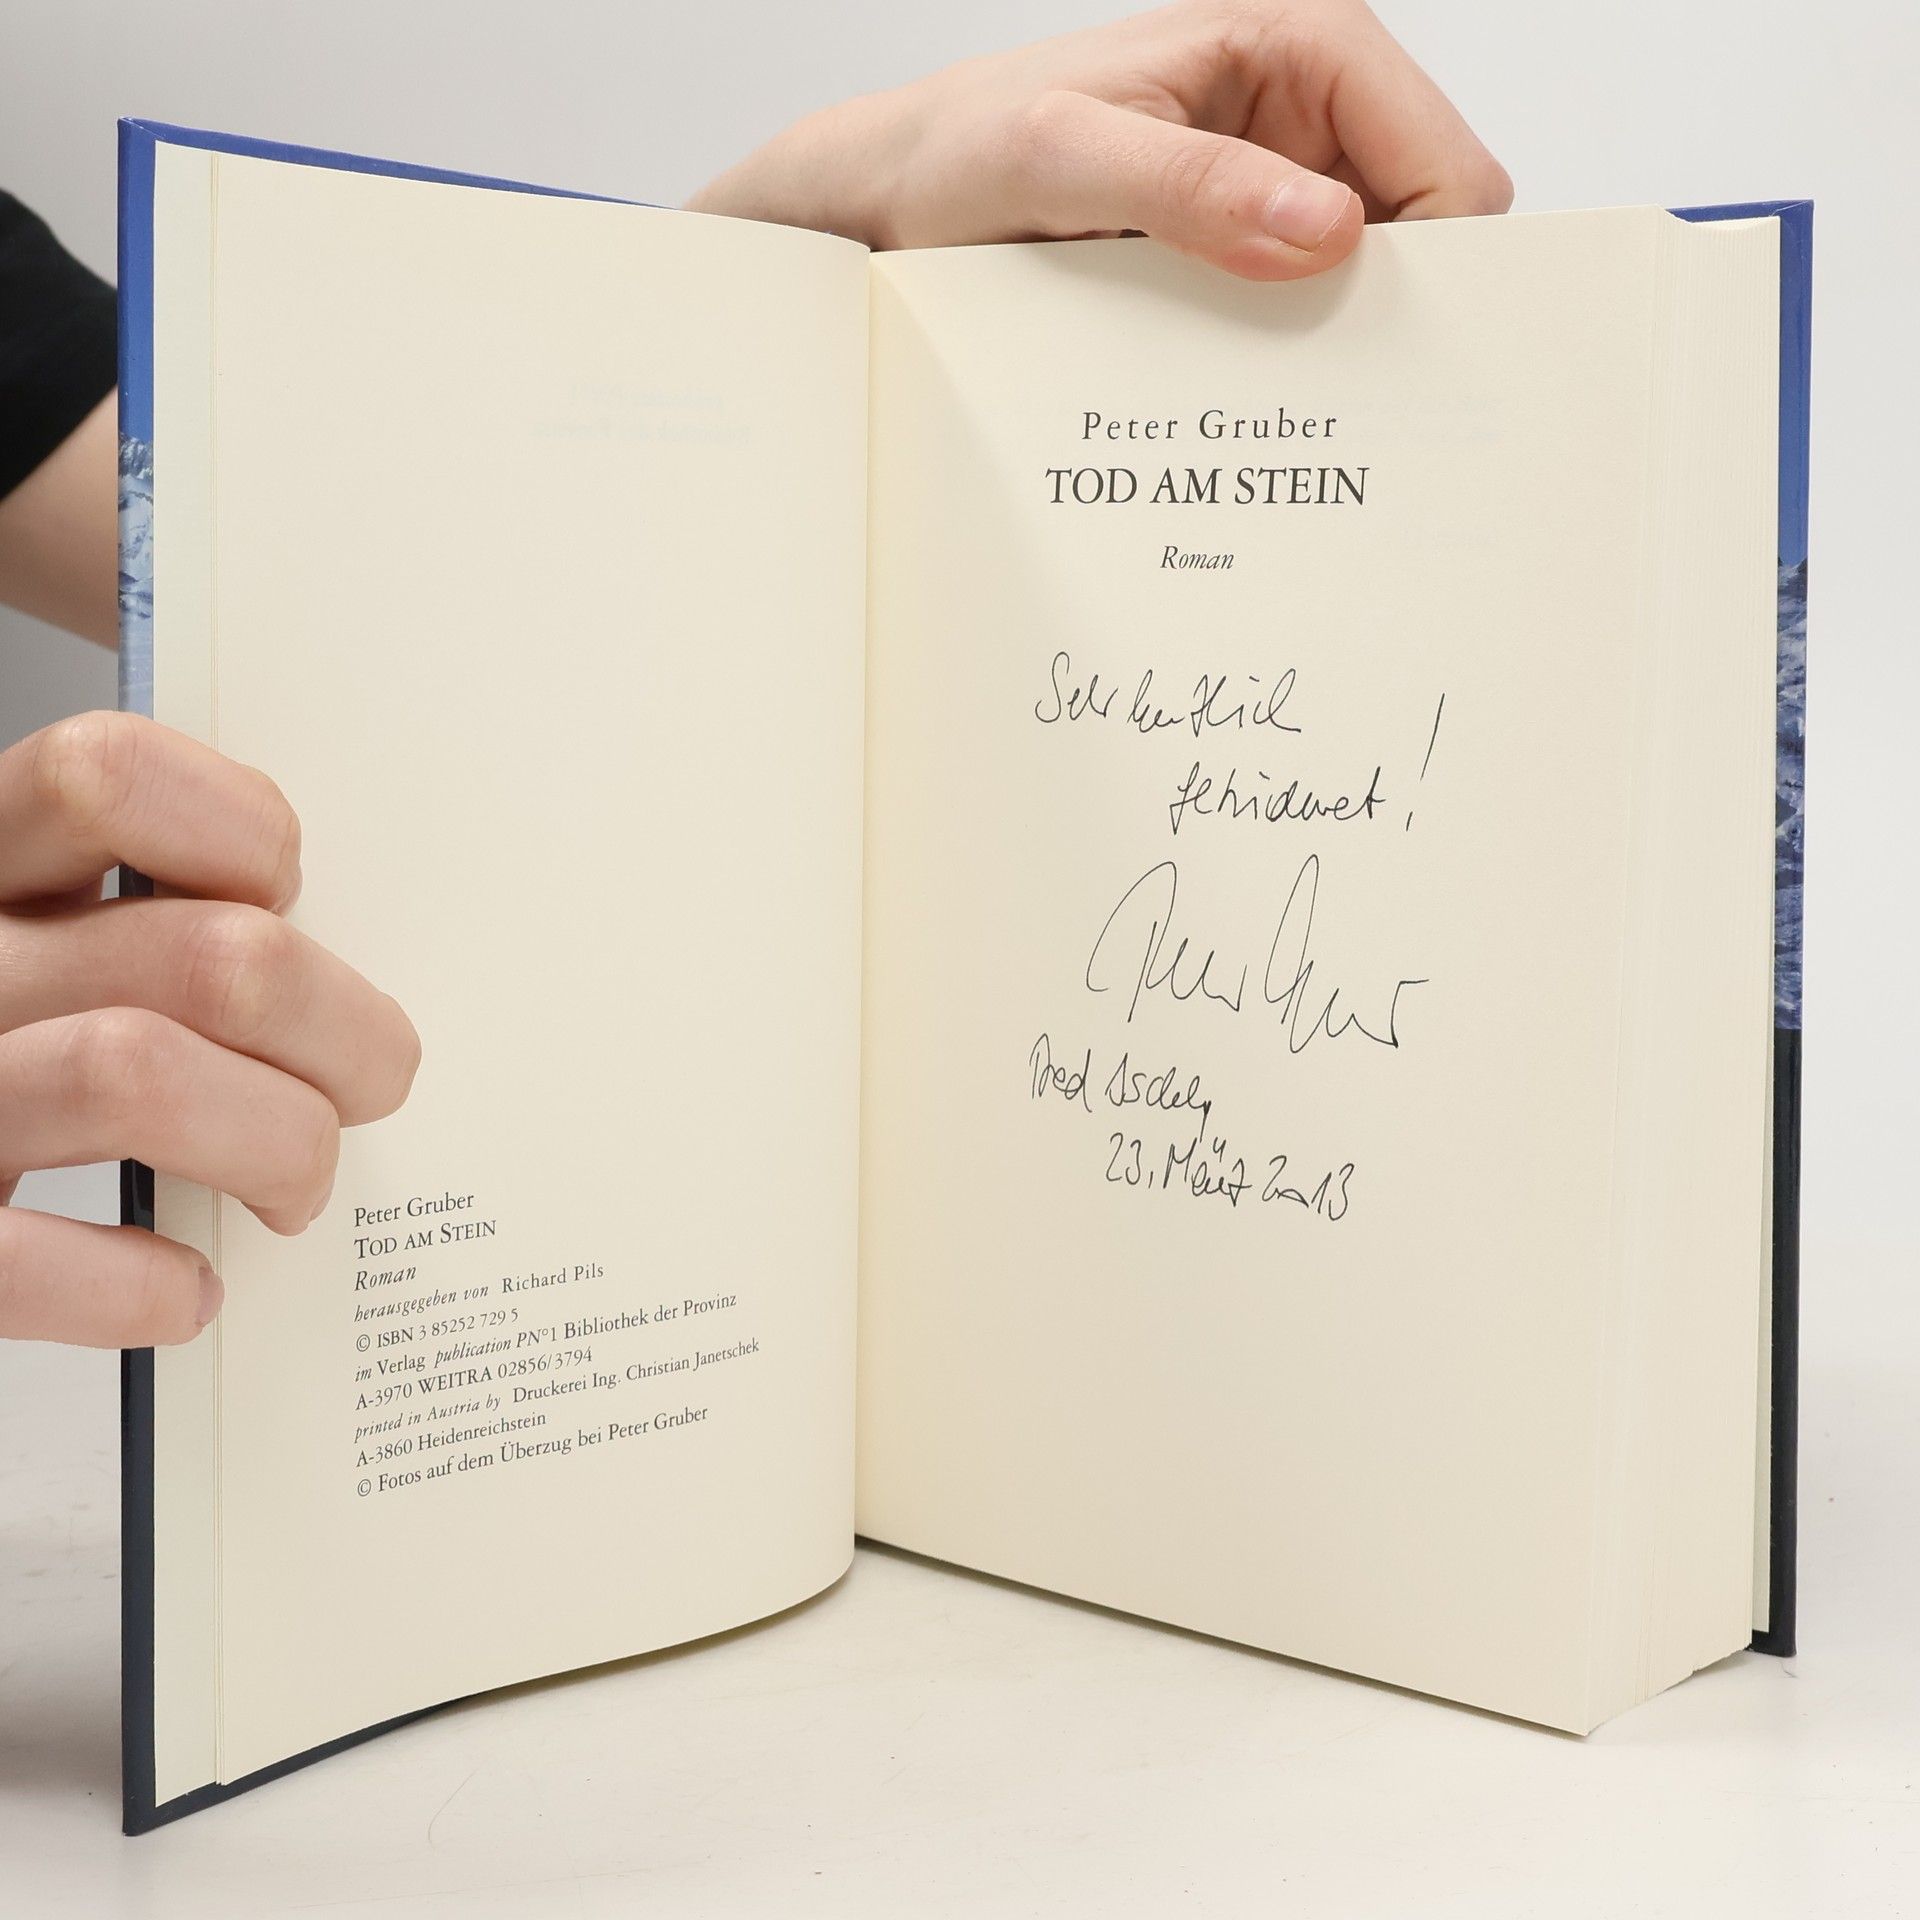 Peter Gruber
TOD AM STEIN
Roman
herausgegeben von Richard Pils
© ISBN 3 85252 729 5
im Verlag publication PN°1 Bibliothek der Provinz
A-3970 WEITRA 02856/3794
printed in Austria by Druckerei Ing. Christian Janetschek
A-3860 Heidenreichstein
© Fotos auf dem Überzug bei Peter Gruber
Peter Gruber
TOD AM STEIN
Roman
Sehr herzlich
gewidmet!
Peter Gruber
Bad Ischl,
23. März 2013